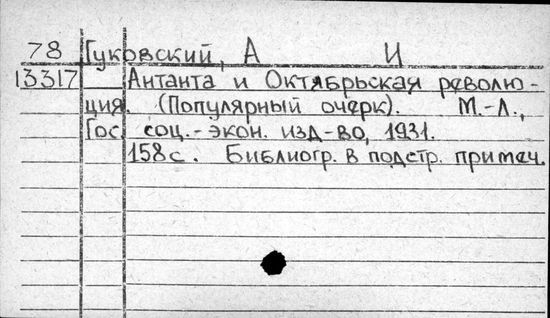 78 Гуковский, А И
13317 Антанта и Октябрьская револю-
ция. (Популярный очерк). М.-Л.,
Гос. соц.-экон. изд-во, 1931.
158 с. Библиогр. в подстр. примеч.